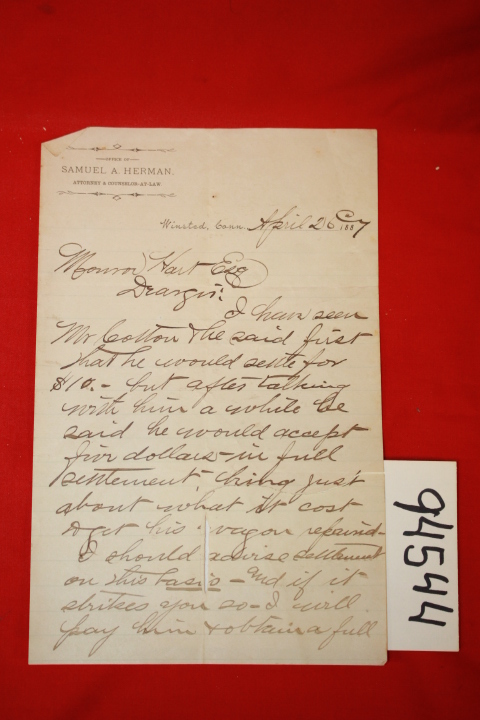 OFFICE OF
SAMUEL A. HERMAN,
ATTORNEY & COUNSELOR-AT-LAW
Winsted, Conn. April 26 1887
Monroe Hart Esq
Dear Sir:
I have seen
Mr Cotton & he said first
that he would settle for
$10.- but after talking
with him a while he
said he would accept
five dollars in full
settlement, being just
about what it cost
to get his wagon repaired-
I should advise settlement
on this basis - and if it
strikes you so - I will
pay him & obtain a full
94544